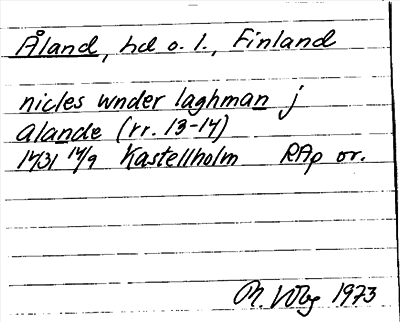 Åland, hd o. l., Finland
nicles wnder laghman j
alande (rr. 13-14)
1431 14/9 Kastellholm RAp or.
M. 1973